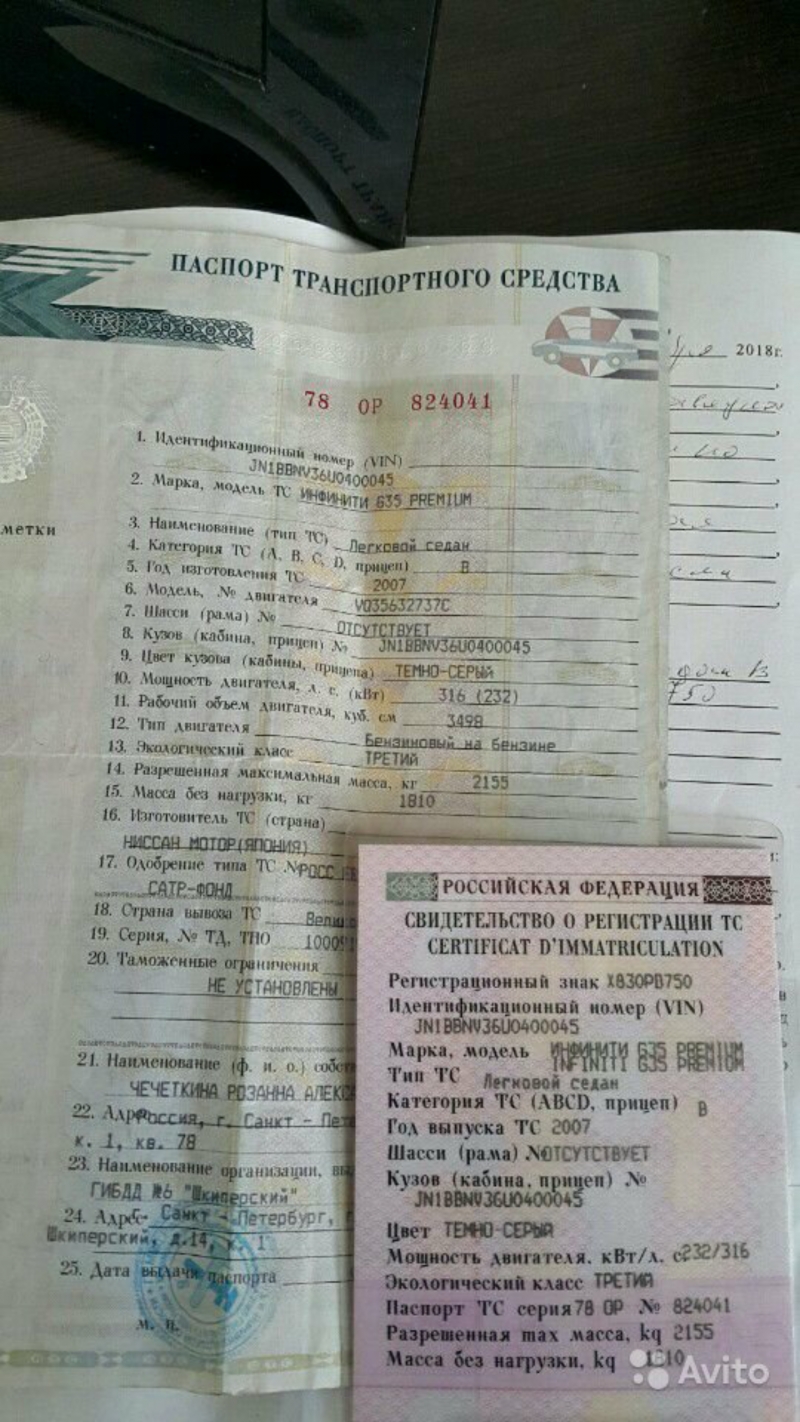 ПАСПОРТ ТРАНСПОРТНОГО СРЕДСТВА
78 ОР 824041
1. Идентификационный номер (VIN)
JN1BBNV36U0400045
2. Марка, модель ТС ИНФИНИТИ G35 PREMIUM
3. Наименование (тип ТС) Легковой седан
4. Категория ТС (А, В, С, D, прицеп) В
5. Год изготовления ТС 2007
6. Модель, № двигателя VQ35632737C
7. Шасси (рама) № ОТСУТСТВУЕТ
8. Кузов (кабина, прицеп) № JN1BBNV36U0400045
9. Цвет кузова (кабины, прицепа) ТЕМНО-СЕРЫЙ
10. Мощность двигателя, л. с. (кВт) 316 (232)
11. Рабочий объем двигателя, куб. см 3498
12. Тип двигателя Бензиновый на бензине
13. Экологический класс ТРЕТИЙ
14. Разрешенная максимальная масса, кг 2155
15. Масса без нагрузки, кг 1810
16. Изготовитель ТС (страна)
НИССАН МОТОР(ЯПОНИЯ)
17. Одобрение типа ТС № РОСС
САТР-ФОНД
18. Страна вывоза ТС
19. Серия, № ТД, ТПО
20. Таможенные ограничения
НЕ УСТАНОВЛЕНЫ
21. Наименование (ф. и. о.)
ЧЕЧЕТКИНА РОЗАННА
22. Адрес Россия, г. Санкт -
к. 1, кв. 78
23. Наименование организации,
ГИБДД №6 "Шкиперский"
24. Адрес Санкт - Петербург,
Шкиперский, д.14,
25. Дата выдачи паспорта
м. п.
метки
2018г.
750
РОССИЙСКАЯ ФЕДЕРАЦИЯ
СВИДЕТЕЛЬСТВО О РЕГИСТРАЦИИ ТС
CERTIFICAT D'IMMATRICULATION
Регистрационный знак Х830РВ750
Идентификационный номер (VIN)
JN1BBNV36U0400045
Марка, модель ИНФИНИТИ G35 PREMIUM
INFINITI G35 PREMIUM
Тип ТС Легковой седан
Категория ТС (ABCD, прицеп) В
Год выпуска ТС 2007
Шасси (рама) № ОТСУТСТВУЕТ
Кузов (кабина, прицеп) №
JN1BBNV36U0400045
Цвет ТЕМНО-СЕРЫЙ
Мощность двигателя, кВт/л. с. 232/316
Экологический класс ТРЕТИЙ
Паспорт ТС серия 78 ОР № 824041
Разрешенная max масса, kg 2155
Масса без нагрузки, kg 1810
Avito